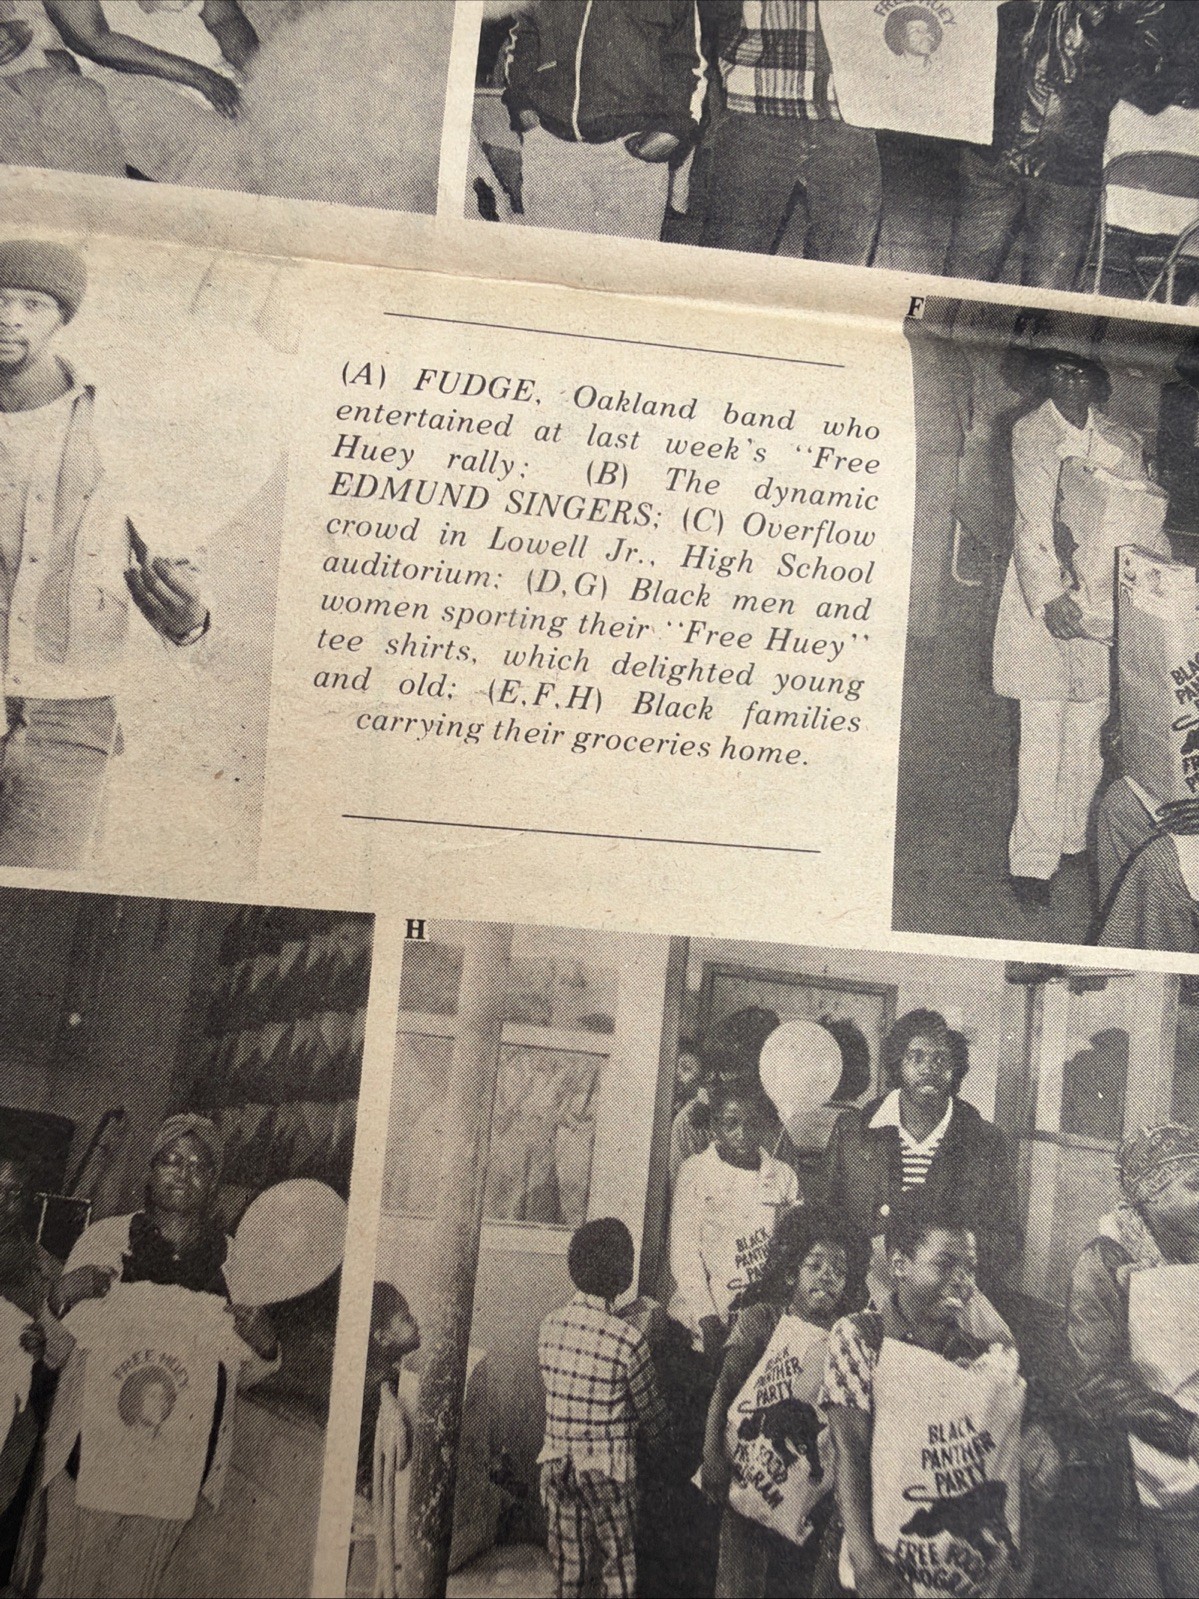 FREE HUEY
F
(A) FUDGE, Oakland band who
entertained at last week's "Free
Huey rally; (B) The dynamic
EDMUND SINGERS; (C) Overflow
crowd in Lowell Jr., High School
auditorium; (D,G) Black men and
women sporting their "Free Huey"
tee shirts, which delighted young
and old; (E,F,H) Black families
carrying their groceries home.
H
FREE HUEY
BLACK
PANTHER
PARTY
PROGRAM
BLACK
PANTHER
PARTY
FREE FOOD